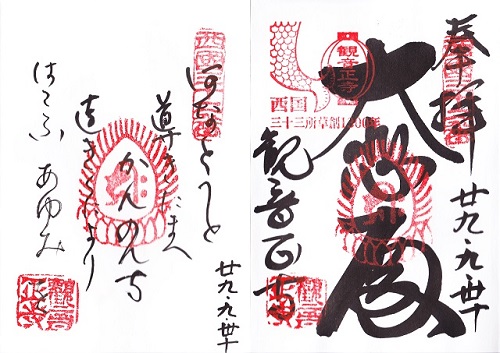 奉拝
廿九.九.卅
大悲殿
観音正寺
西国
三十三所草創1300年
観音正寺
あなとうと
導きたまへ
かんのん寺
遠きくにより
はこふ あゆみ
廿九.九.卅